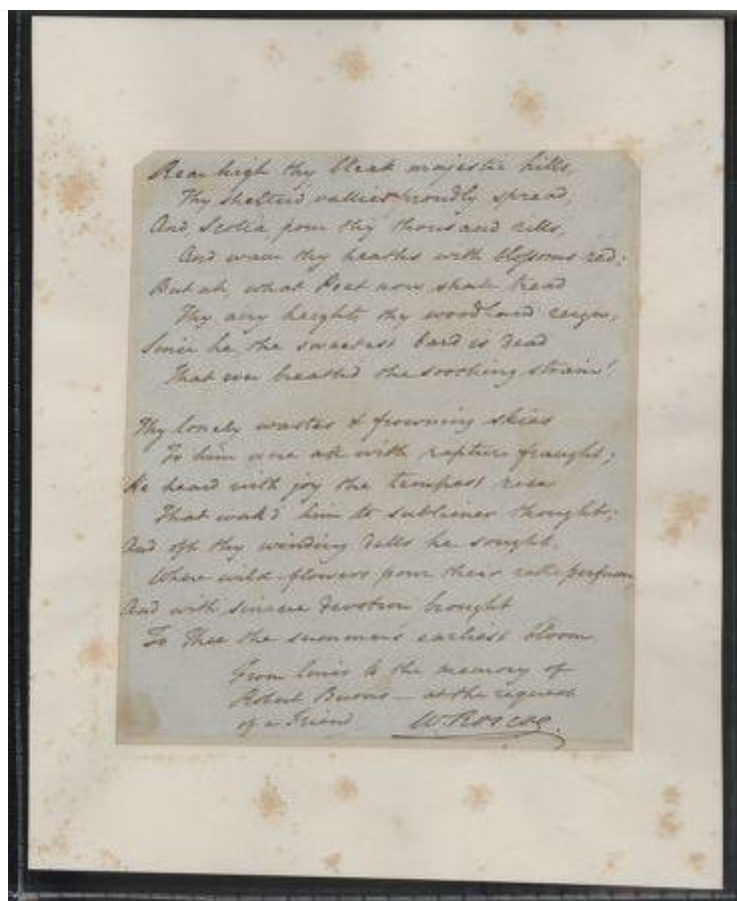 Rear high thy bleak majestic hills,
Thy shelter'd vallies proudly spread,
And Scotia pour thy thousand rills,
And wave thy heaths with blossoms red;
But ah, what Poet now shall tread
Thy airy heights, thy woodland reign,
Since he the sweetest bard is dead
That ever breathed the soothing strain!
Thy lonely wastes & frowning skies
To him were all with rapture fraught;
He heard with joy the tempest rise
That wak'd him to sublimer thought;
And oft thy winding dells he sought,
Where wild-flowers pour their rathe perfume,
And with sincere devotion brought
To Thee the summer's earliest bloom
From lines to the memory of
Robert Burns — at the request
of a Friend W. Roscoe.